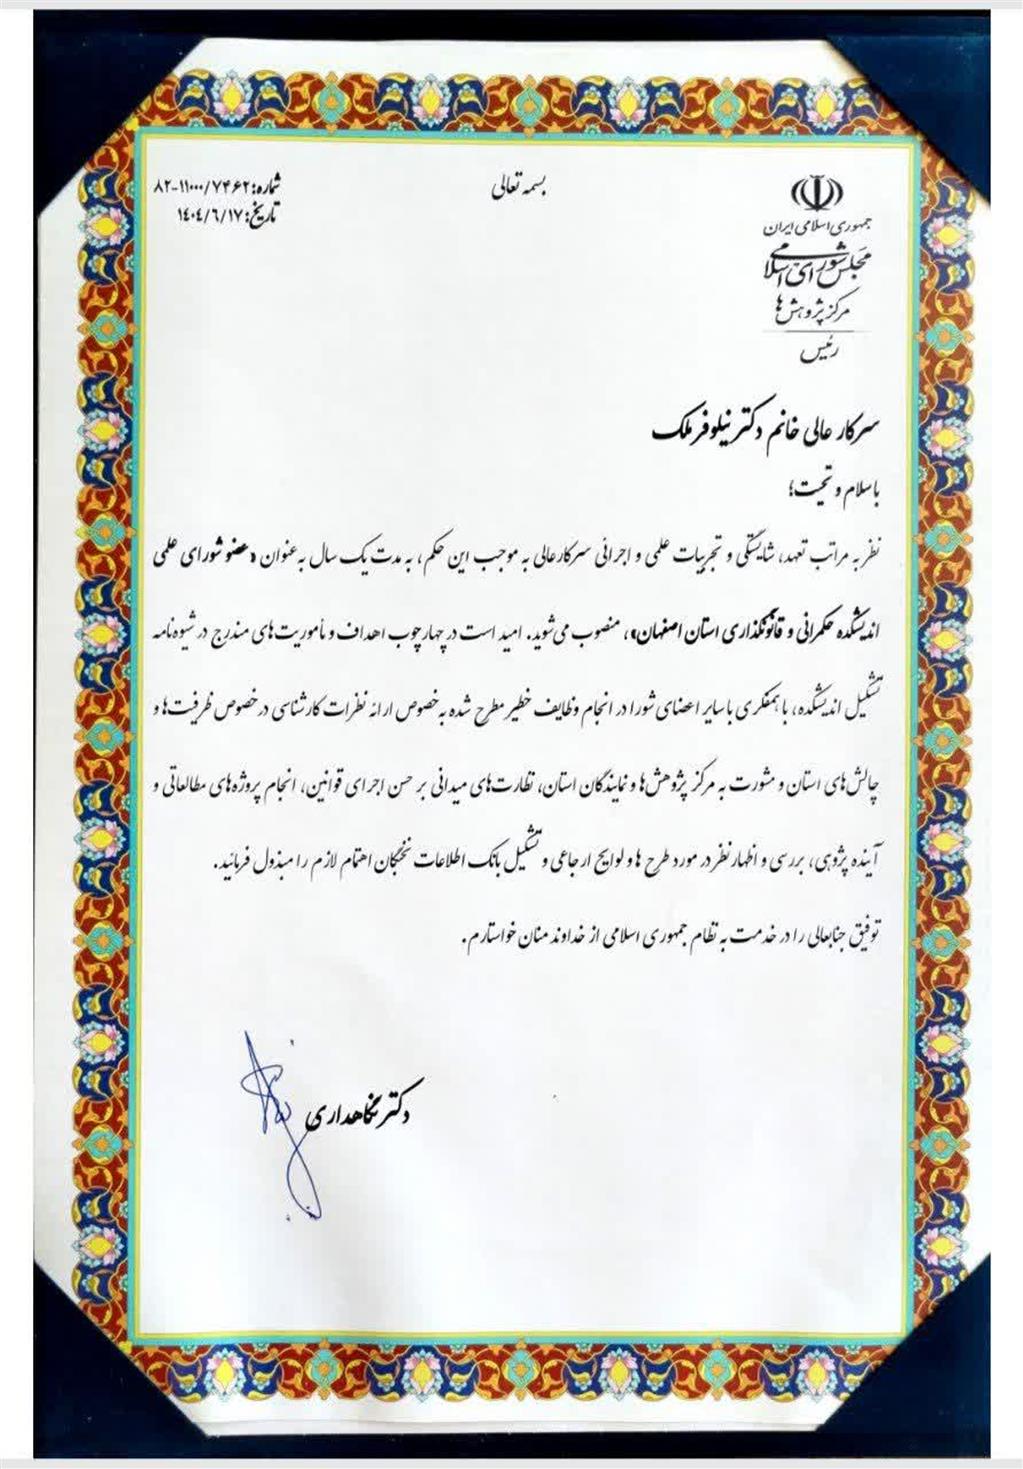 بسمه تعالی
جمهوری اسلامی ایران
مجلس شورای اسلامی
مرکز پژوهش‌ها
رئیس
شماره: ۸۲-۱۱۰۰۰/۷۴۶۲
تاریخ: ۱۴۰۴/۶/۱۷
سرکار عالی خانم دکتر نیلوفر ملک
با سلام و تحیت؛
نظر به مراتب تعهد، شایستگی و تجربیات علمی و اجرائی سرکارعالی به موجب این حکم، به مدت یک سال به عنوان «عضو شورای علمی
اندیشکده حکمرانی و قانونگذاری استان اصفهان»، منصوب می‌شوید. امید است در چهارچوب اهداف و مأموریت‌های مندرج در شیوه‌نامه
تشکیل اندیشکده، با همفکری با سایر اعضای شورا در انجام وظایف خطیر مطرح شده به‌خصوص ارائه نظرات کارشناسی درخصوص ظرفیت‌ها و
چالش‌های استان و مشورت به مرکز پژوهش‌ها و نمایندگان استان، نظارت‌های میدانی بر حسن اجرای قوانین، انجام پروژه‌های مطالعاتی و
آینده پژوهی، بررسی و اظهارنظر در مورد طرح ها و لوایح ارجاعی و تشکیل بانک اطلاعات نخبگان اهتمام لازم را مبذول فرمائید.
توفیق جنابعالی را در خدمت به نظام جمهوری اسلامی از خداوند منان خواستارم.
دکتر نگاهداری